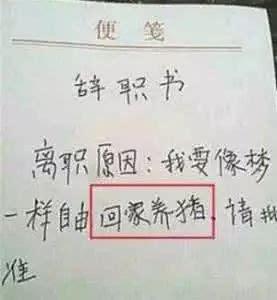 便笺
辞职书
离职原因：我要像梦
一样自由回家养猪，请批
准